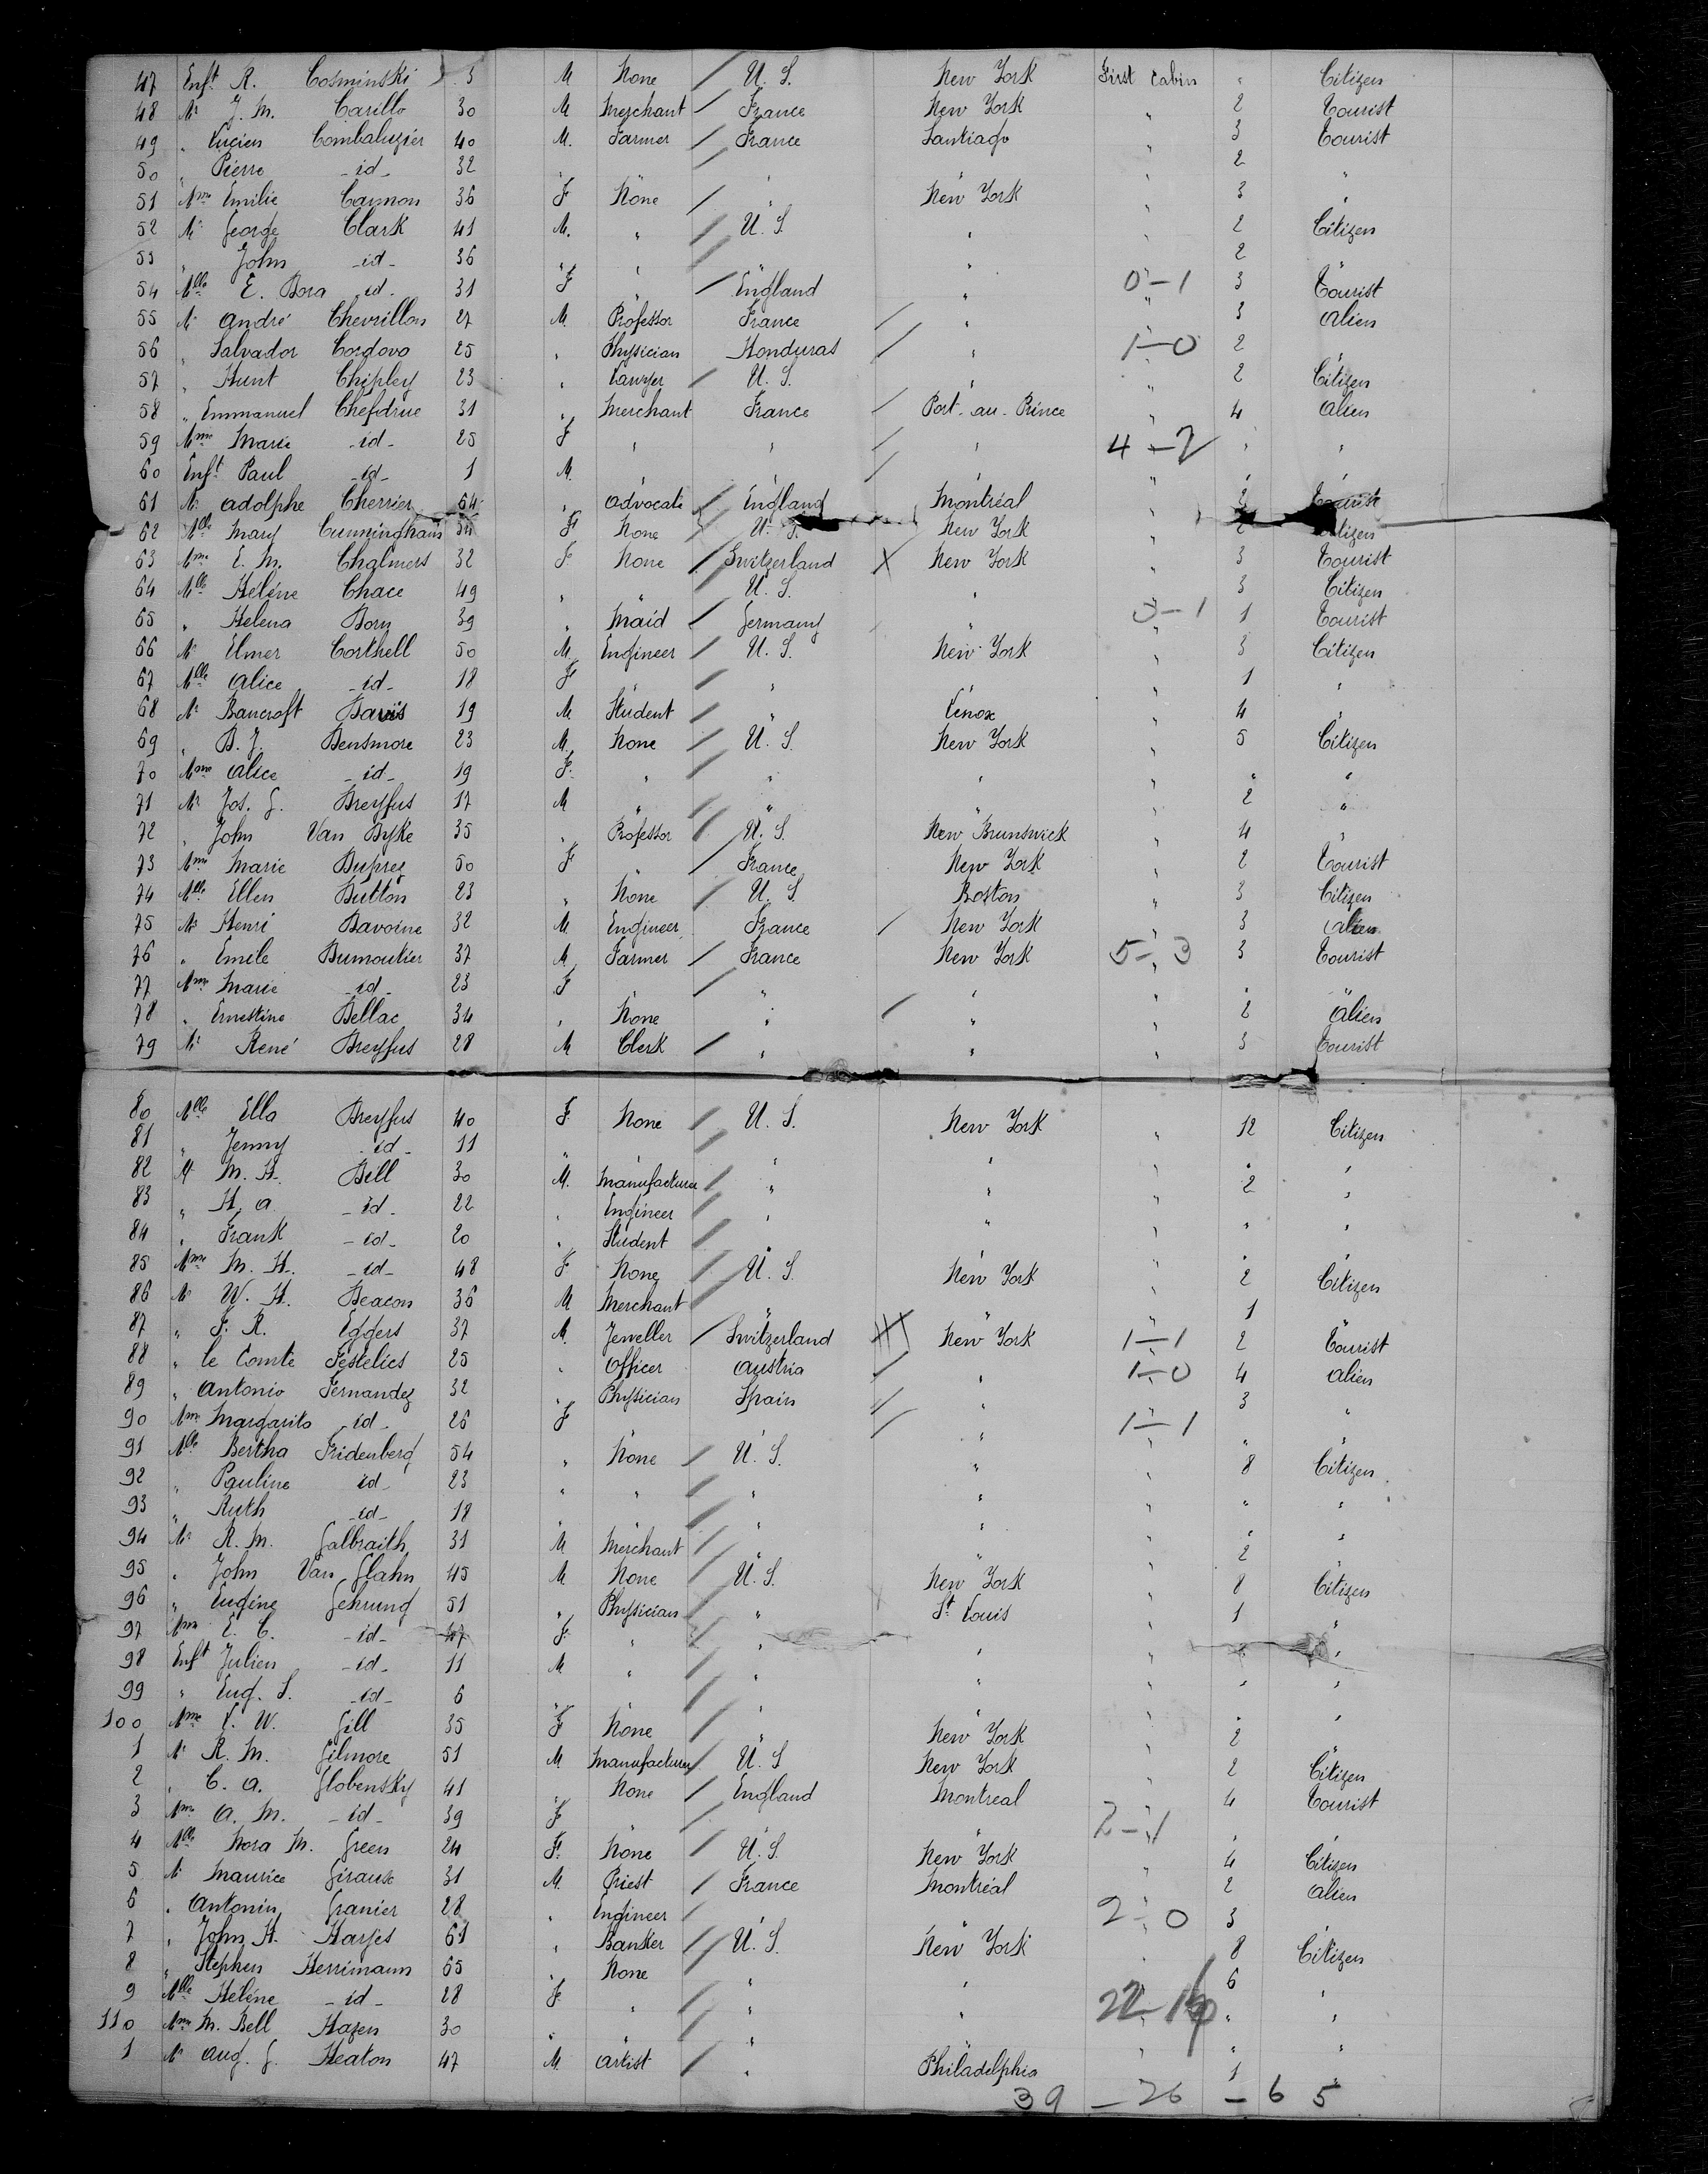 47 Enft R. Cosminski 3 M None / U. S. New York First Cabin " Citizen
48 Mr J. M. Carillo 30 M Merchant / France New York " 2 Tourist
49 " Lucien Combaluzier 40 M. Farmer / France Santiago " 3 Tourist
50 " Pierre _id_ 32 " " / " " " 2 "
51 Mme Emilie Cannon 36 F None / " New York " 3 "
52 Mr George Clark 41 M. " / U. S. " " 2 Citizen
53 " John _id_ 36 " " / " " " 2 "
54 Mlle E. Dora id. 31 F / England " 0-1 3 Tourist
55 Mr André Chevrillon 27 M. Professor France / " " 3 Alien
56 " Salvador Cordovo 25 " Physician Honduras / " 1-0 2 "
57 " Hunt Chipley 23 " Lawyer / U. S. " " 2 Citizen
58 " Emmanuel Chefdrue 31 " Merchant France / Port-au-Prince " 4 Alien
59 Mme Marie _id_ 25 F " " / " 4-2 " "
60 Enft Paul _id_ 1 M. " / " " " "
61 Mr Adolphe Cherrier 64 " Advocate / England Montréal " Tourist
62 Mlle Mary Cunningham F None / U. S. New York " 2 Citizen
63 Mme E. M. Chalmers 32 F None / Switzerland X New York " 3 Tourist
64 Mlle Hélène Chace 49 " " U. S. " " 3 Citizen
65 " Helena Born 39 " Maid / Germany " 0-1 1 Tourist
66 Mr Elmer Corthell 50 M. Engineer / U. S. New York " 3 Citizen
67 Mlle Alice _id_ 18 F " / " " " 1 "
68 Mr Bancroft Davis 19 M Student / " Lenox " 4 "
69 " D. J. Densmore 23 M. None / U. S. New York " 5 Citizen
70 Mme Alice _id_ 19 F. " / " " " " "
71 Mr Jos. G. Dreyfus 17 M " / " " " 2 "
72 " John Van Dyke 35 " Professor / U. S. New Brunswick " 4 "
73 Mme Marie Duprez 50 F / France New York " 2 Tourist
74 Mlle Ellen Dutton 23 " None / U. S. Boston " 3 Citizen
75 Mr Henri Davoine 32 M Engineer France / New York " 3 Alien
76 " Emile Dumoutier 37 M Farmer / France New York 5-3 3 Tourist
77 Mme Marie _id_ 23 F / " " " " "
78 " Ernestine Dellac 34 " None " / " " 2 Alien
79 Mr René Dreyfus 28 M Clerk / " " " 3 Tourist
80 Mlle Ella Dreyfus 40 F None / U. S. New York " 12 Citizen
81 " Jenny id_ 11 " " / " " " " "
82 M M. H. Dell 30 M. Manufacturer / " " " 2 "
83 " H. A. _id_ 22 " Engineer / " " " " "
84 " Frank _id_ 20 " Student / " " " " "
85 Mme M. H. _id_ 48 F None / U. S. New York " 2 Citizen
86 Mr W. H. Deacon 36 M Merchant / " " " 1 "
87 " F. R. Eggers 37 M. Jeweller / Switzerland New York 1-1 2 Tourist
88 " le Comte Festelics 25 " Officer Austria / " 1-0 4 Alien
89 " Antonio Fernandez 32 " Physician Spain / " " 3 "
90 Mme Margarita id. 26 F / " 1-1 " "
91 Mlle Bertha Fridenberg 54 " None / U. S. " " 8 Citizen
92 " Pauline id_ 23 " " / " " " " "
93 " Ruth _id_ 18 " " / " " " " "
94 Mr R. M. Galbraith 31 M Merchant / " " " 2 "
95 " John Van Glahn 45 M None / U. S. New York " 8 Citizen
96 " Eugène Gehrung 51 " Physician / " St Louis " 1 "
97 Mme E. C. _id_ 47 F " / " " " " "
98 Enft Julien _id_ 11 M " / " " " " "
99 " Eug. S. _id_ 6 " / " " " " "
100 Mme L. W. Gill 35 F None / " New York " 2 "
1 Mr R. M. Gilmore 51 M Manufacturer / U. S New York " 2 Citizen
2 " C. A. Globensky 41 " None / England Montreal " 4 Tourist
3 Mme A. M. _id_ 39 F / 2-1 " "
4 Mlle Nora M. Green 24 F. None / U. S. New York " 4 Citizen
5 Mr Maurice Giraux 31 M. Priest / France Montréal " 2 Alien
6 " Antonin Granier 28 " Engineer / " " 2-0 3 "
7 " John H. Harjes 61 " Banker / U. S. New York " 8 Citizen
8 " Stephen Herrimann 65 " None / " " 6 "
9 Mlle Hélène _id_ 28 F " / " " 22- " "
110 Mme M. Bell Hazen 30 " / " " " "
1 Mr Aug. G. Heaton 47 M. Artist / " Philadelphia " 1 "
39 - 26 - 6 5